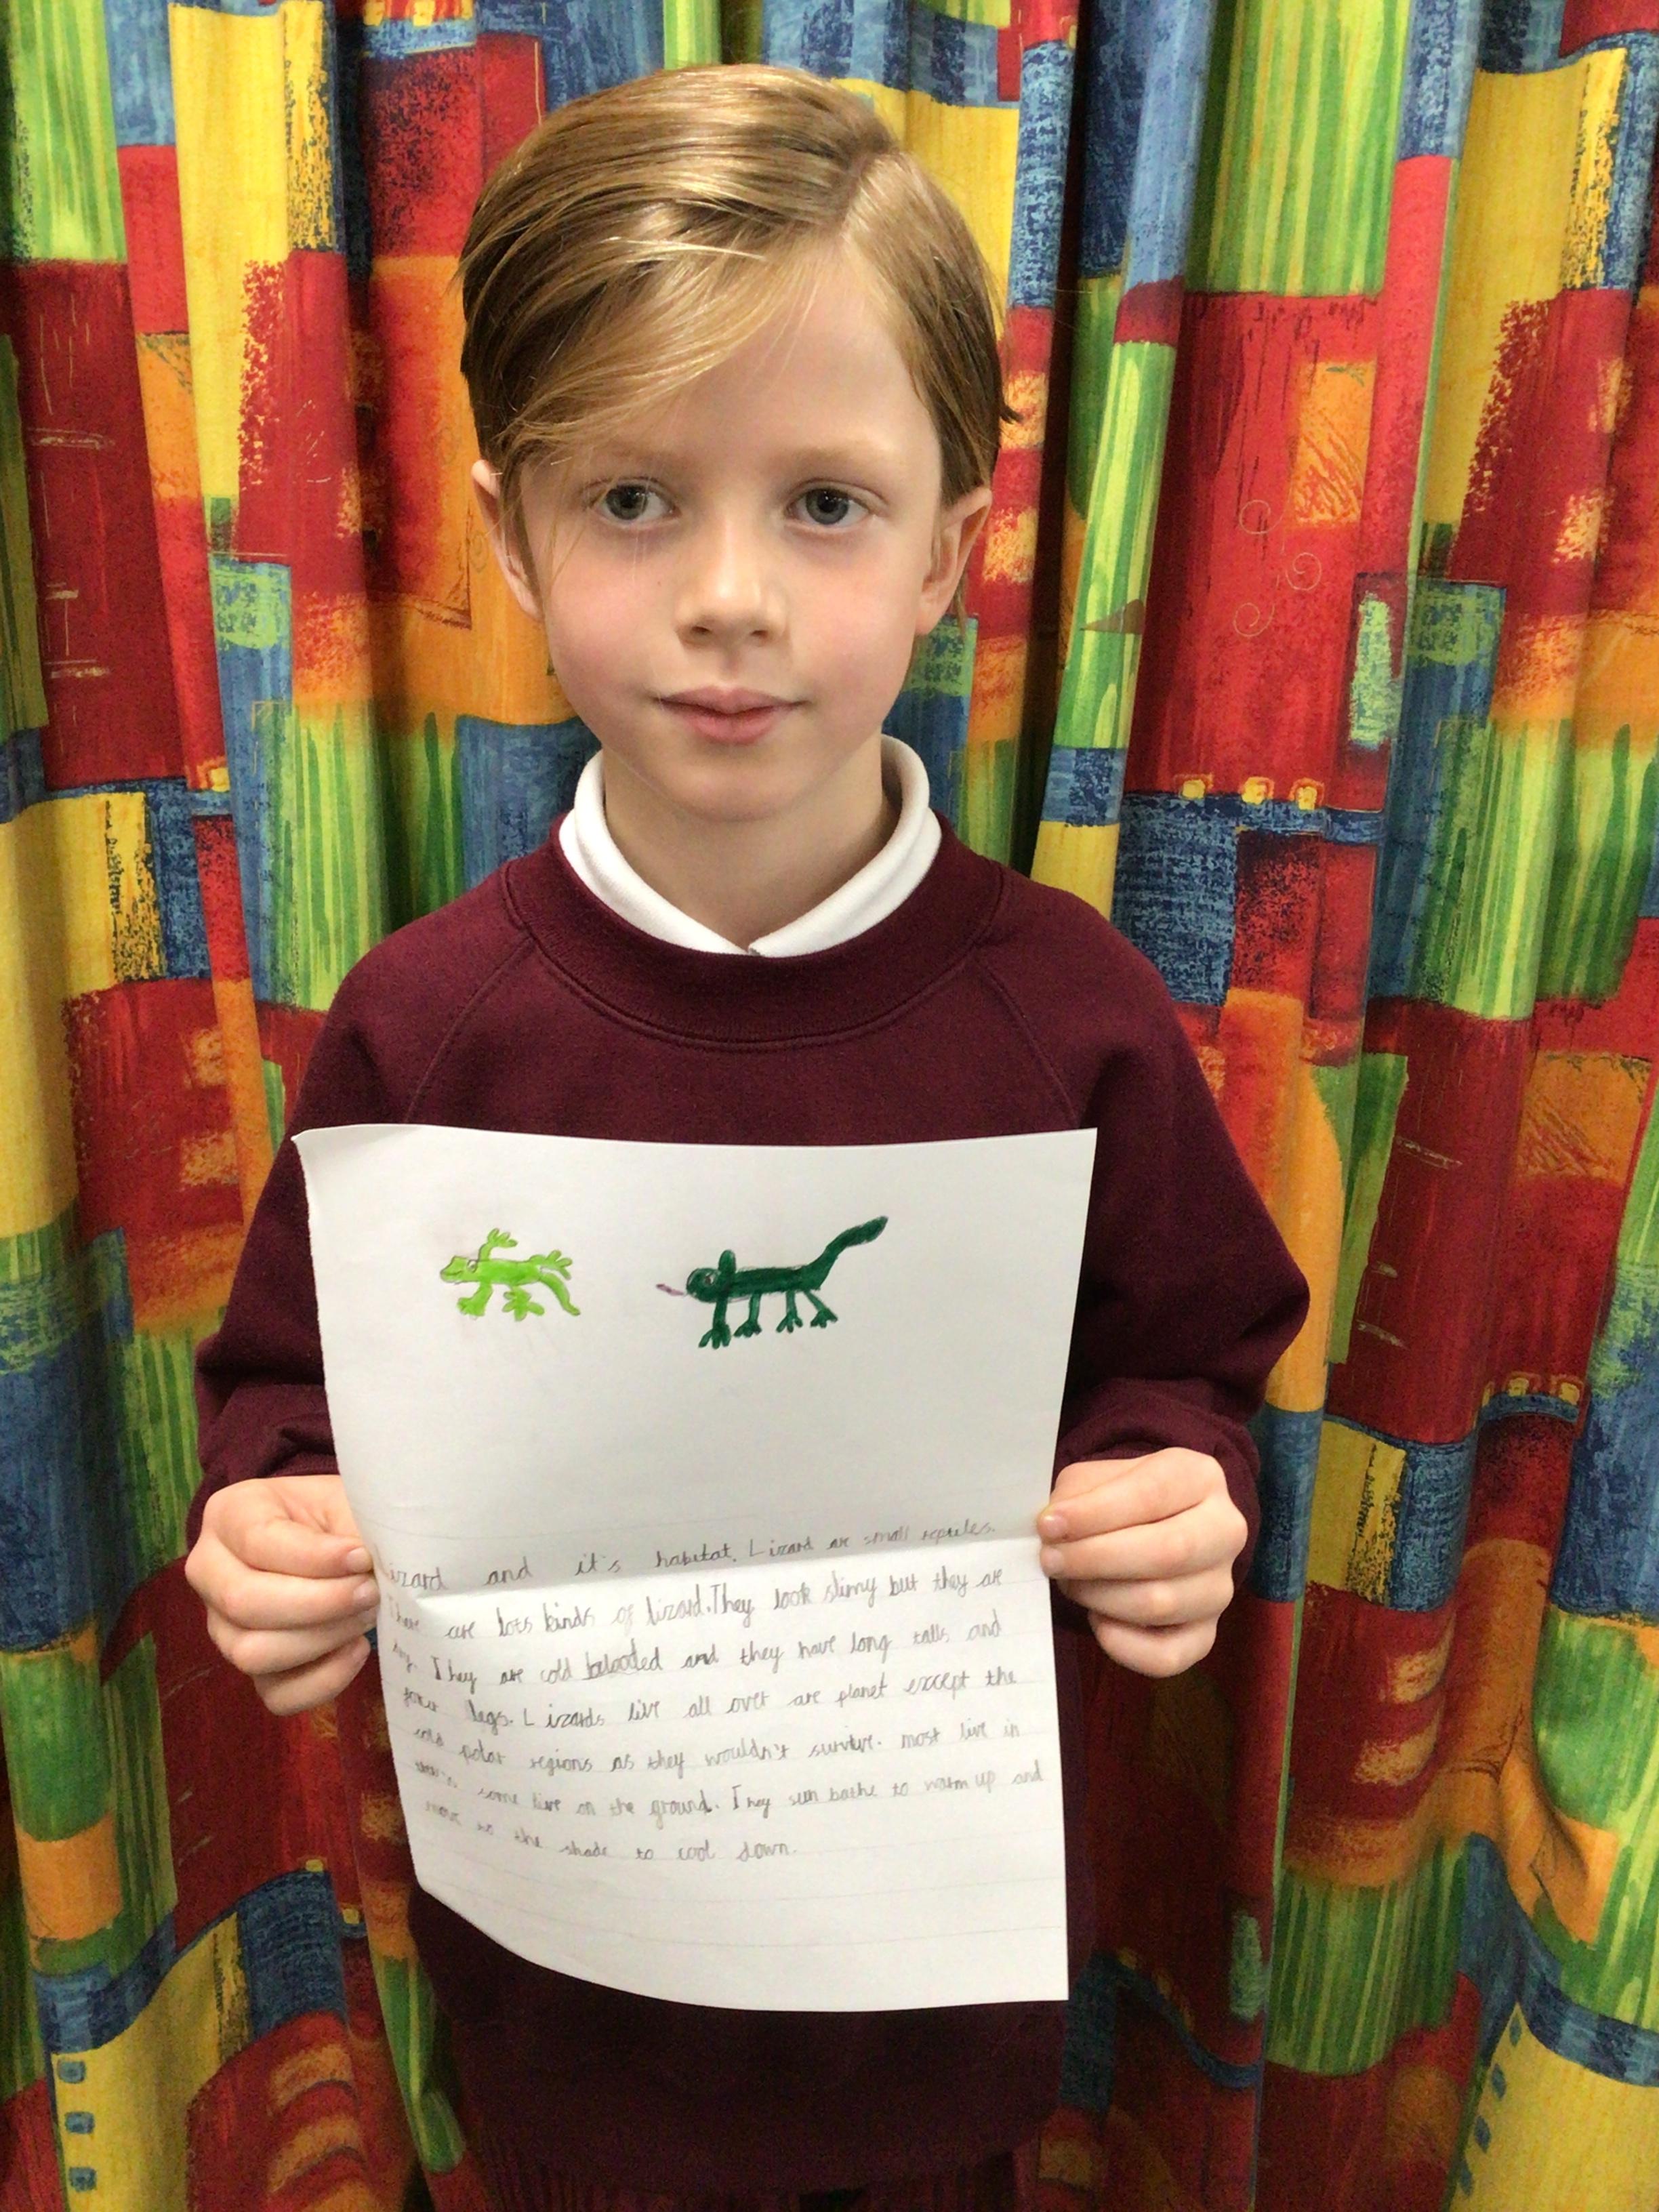 Lizard and it's habitat. Lizard are small reptiles.
There are lots kinds of lizard. They look slimy but they are
dry. They are cold belooded and they have long talls and
four legs. Lizards live all over are planet except the
cold polar regions as they wouldn't survive. most live in
some live on the ground. They sun bathe to warm up and
move to the shade to cool down.